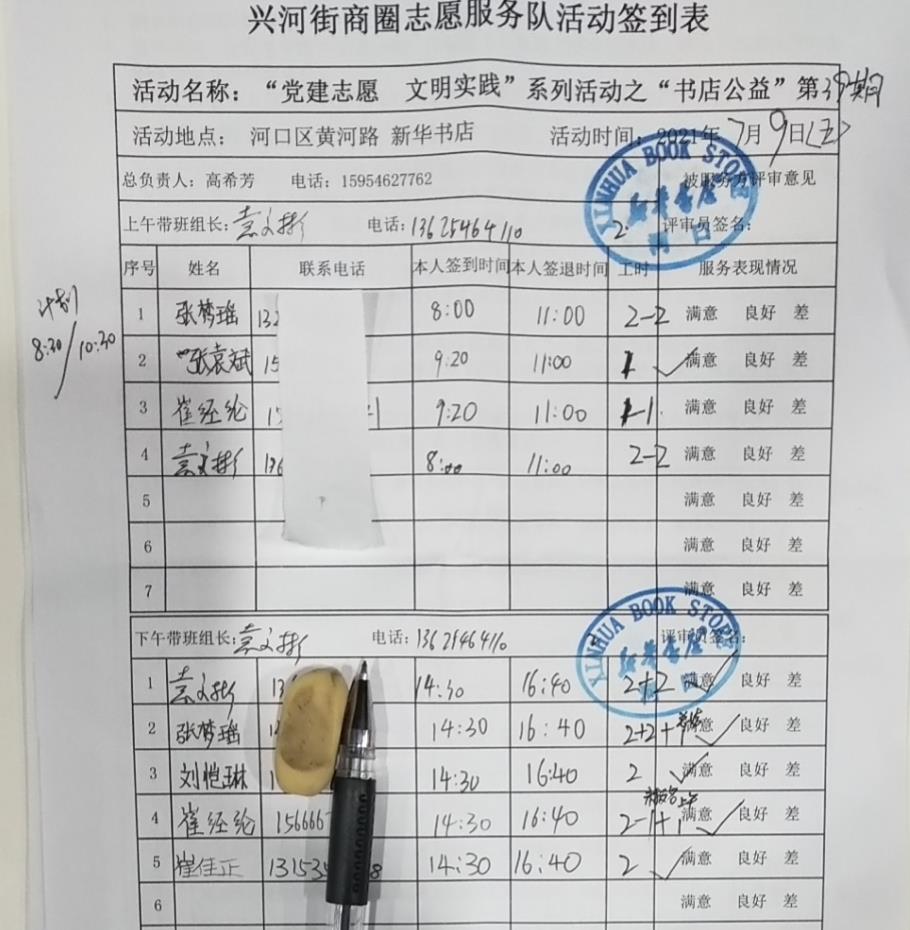 兴河街商圈志愿服务队活动签到表
活动名称：“党建志愿 文明实践”系列活动之“书店公益”第39期
活动地点： 河口区黄河路 新华书店 活动时间：2021年7月9日(五)
总负责人：高希芳 电话：15954627762 被服务方评审意见
上午带班组长：袁文彬 电话：13625464110 评审员签名：
XINHUA BOOK STORE
新华书店
河口
序号 姓名 联系电话 本人签到时间 本人签退时间 工时 服务表现情况
计划
8:30/10:30
1 张梦瑶 132 8:00 11:00 2-2 满意 良好 差
2 张袁斌 15 9:20 11:00 1 满意 良好 差
3 崔经纶 15 1 9:20 11:00 1-1 满意 良好 差
4 袁文彬 136 8:00 11:00 2-2 满意 良好 差
5 满意 良好 差
6 满意 良好 差
7 满意 良好 差
下午带班组长：袁文彬 电话：13625464110 评审员签名：
XINHUA BOOK STORE
新华书店
1 袁文彬 13 14:30 16:40 2+2 满意 良好 差
2 张梦瑶 14:30 16:40 2+2+ 满意 良好 差
3 刘恺琳 1 14:30 16:40 2 满意 良好 差
4 崔经纶 156667 14:30 16:40 2-1+1 满意 良好 差
5 崔佳正 13153 8 14:30 16:40 2 满意 良好 差
6 满意 良好 差